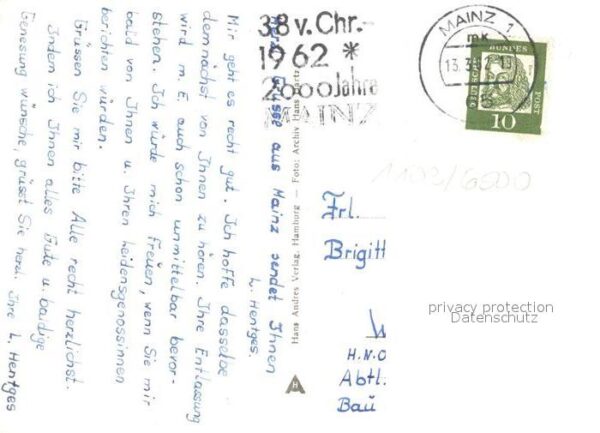 Herzl. Grüsse aus Mainz sendet Ihnen
L. Hentges.
Mir geht es recht gut. Ich hoffe dasselbe
demnächst von Ihnen zu hören. Ihre Entlassung
wird m. E. auch schon unmittelbar bevor-
stehen. Ich würde mich freuen, wenn Sie mir
bald von Ihnen u. Ihren Leidensgenossinnen
berichten würden.
Grüssen Sie mir bitte Alle recht herzlichst.
Indem ich Ihnen alles Gute u. baldige
Genesung wünsche, grüsst Sie herzl. Ihre L. Hentges
38 v. Chr.-
1962 *
2000 Jahre
MAINZ
MAINZ 1
mk
DEUTSCHE BUNDESPOST
10
1102/6500
Hans Andres Verlag, Hamburg — Foto: Archiv Hans
A
H
Frl.
Brigitt
H.N.O
Abtl.
Bau
privacy protection
Datenschutz